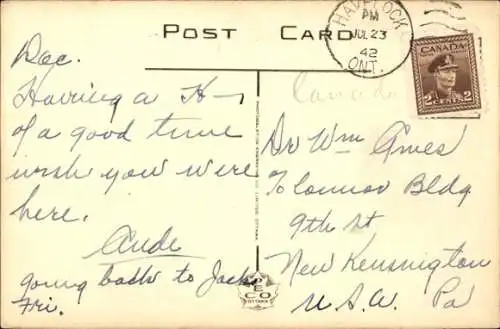 POST CARD
HAVELOCK
PM
JUL 23
42
ONT.
CANADA
2 CENTS 2
Canada
Doc.
Having a H—
of a good time
wish you were
here.
Ande
going back to Jack
Fri.
Dr Wm Ames
Bldg
9th St
New Kensington
U.S.A. Pa
PECO